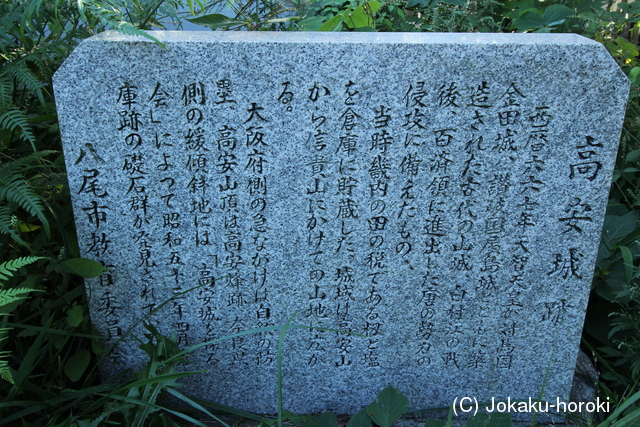 高安城跡
西暦六六七年、天智天皇が対馬国
金田城、讃岐国屋島城とともに築
造された古代の山城。白村江の戦
後、百済領に進出した唐の勢力の
侵攻に備えたもの。
当時畿内の田の税である籾と塩
を倉庫に貯蔵した。城域は高安山
から信貴山にかけての山地になが
る。
大阪府側の急ながけは自然の防
塁、高安山頂は高安烽跡、奈良県
側の緩傾斜地には、「高安城を
会」によって昭和五十三年四月
庫跡の礎石群が発見され
八尾市教育委員
(C) Jokaku-horoki